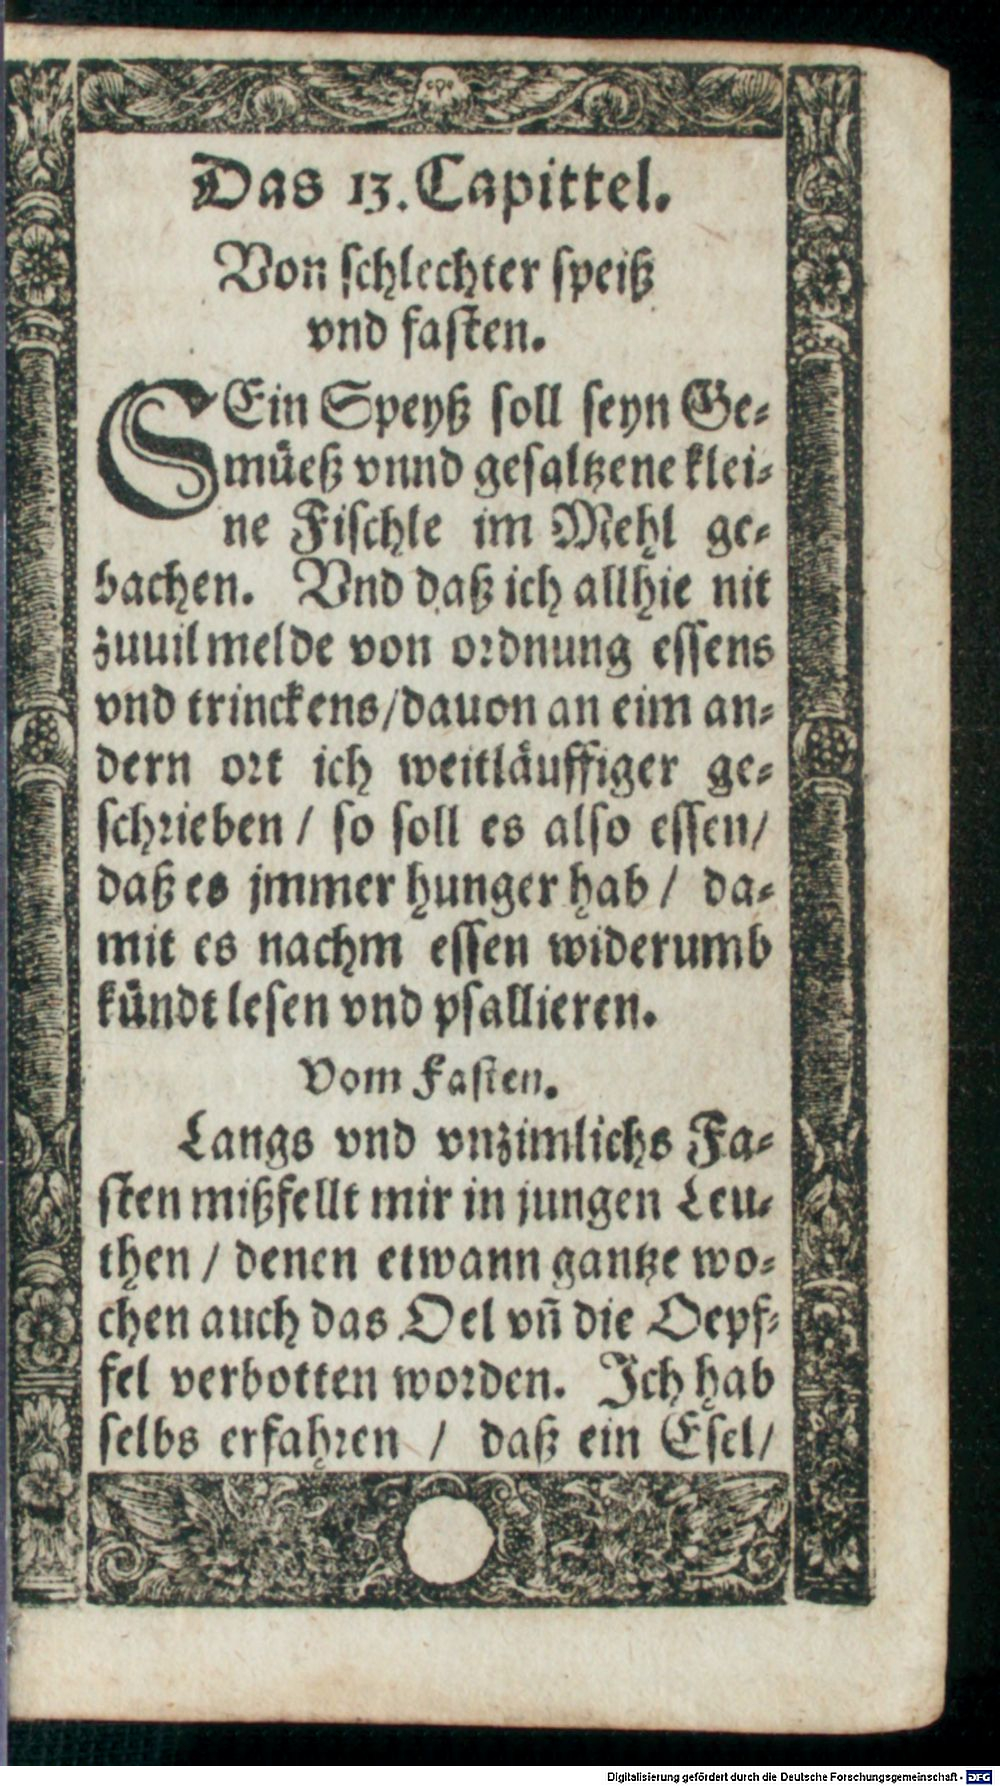 Das 13. Capittel.
Von schlechter speiß
vnd fasten.
SEin Speyß soll seyn Ge-
müeß vnnd gesaltzene klei-
ne Fischle im Mehl ge-
bachen. Vnd daß ich allhie nit
zuuil melde von ordnung essens
vnd trinckens/dauon an eim an-
dern ort ich weitläuffiger ge-
schrieben / so soll es also essen/
daß es jmmer hunger hab / da-
mit es nachm essen widerumb
kündt lesen vnd psallieren.
Vom Fasten.
Langs vnd vnzimlichs Fa-
sten mißfellt mir in jungen Leu-
then / denen etwann gantze wo-
chen auch das Oel vñ die Oepf-
fel verbotten worden. Ich hab
selbs erfahren / daß ein Esel/
Digitalisierung gefördert durch die Deutsche Forschungsgemeinschaft - DFG